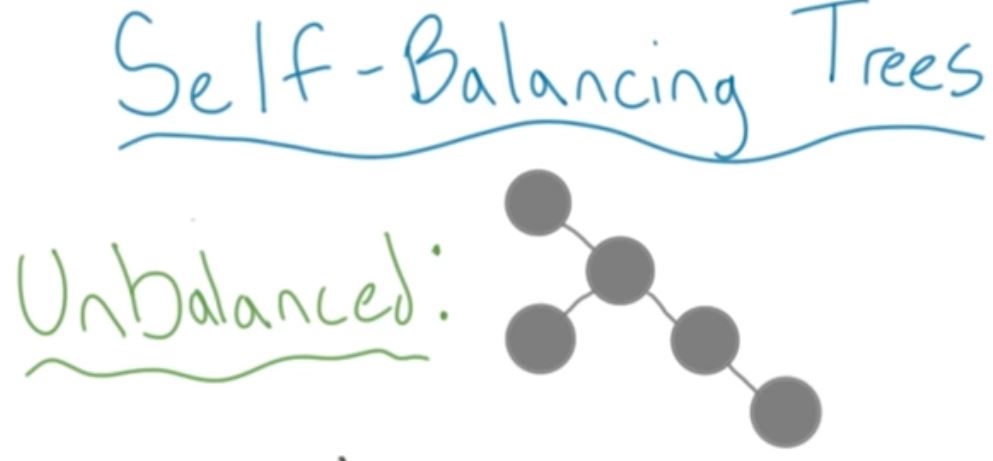 Self-Balancing Trees
Unbalanced: